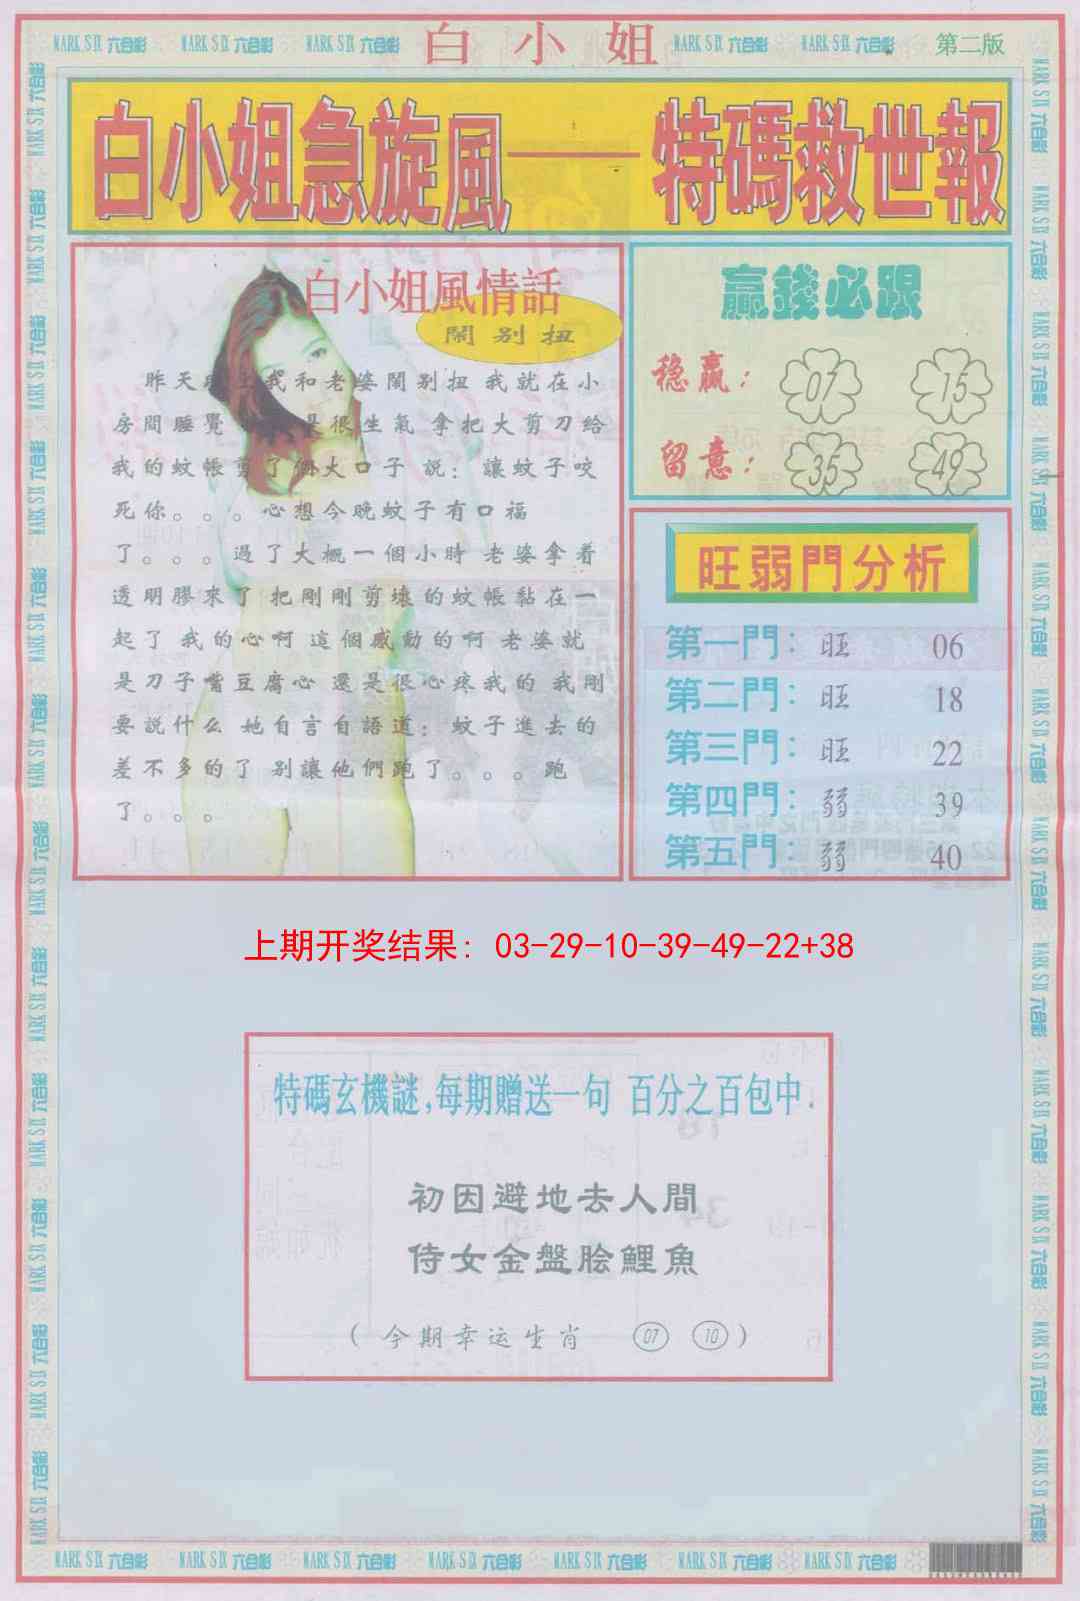 MARK SIX 六合彩 MARK SIX 六合彩 MARK SIX 六合彩 白小姐 MARK SIX 六合彩 MARK SIX 六合彩 第二版
白小姐急旋風——特碼救世報
白小姐風情話
鬧别扭
昨天 我和老婆鬧别扭 我就在小
房間睡覺 是很生氣 拿把大剪刀给
我的蚊帳剪了個大口子 説：讓蚊子咬
死你。。。心想今晚蚊子有口福
了。。。過了大概一個小時 老婆拿着
透明膠來了 把剛剛剪壞的蚊帳黏在一
起了 我的心啊 這個感動的啊 老婆就
是刀子嘴豆腐心 還是很心疼我的 我剛
要説什么 她自言自語道：蚊子進去的
差不多的了 别讓他們跑了。。。跑
了。。。
贏錢必跟
稳赢：07 15
留意：35 49
旺弱門分析
第一門：旺 06
第二門：旺 18
第三門：旺 22
第四門：弱 39
第五門：弱 40
上期开奖结果: 03-29-10-39-49-22+38
特碼玄機謎,每期贈送一句 百分之百包中.
初因避地去人間
侍女金盤脍鯉魚
(今期幸运生肖 07 10)
MARK SIX 六合彩 MARK SIX 六合彩 MARK SIX 六合彩 MARK SIX 六合彩 MARK SIX 六合彩 MARK SIX 六合彩 MARK SIX 六合彩